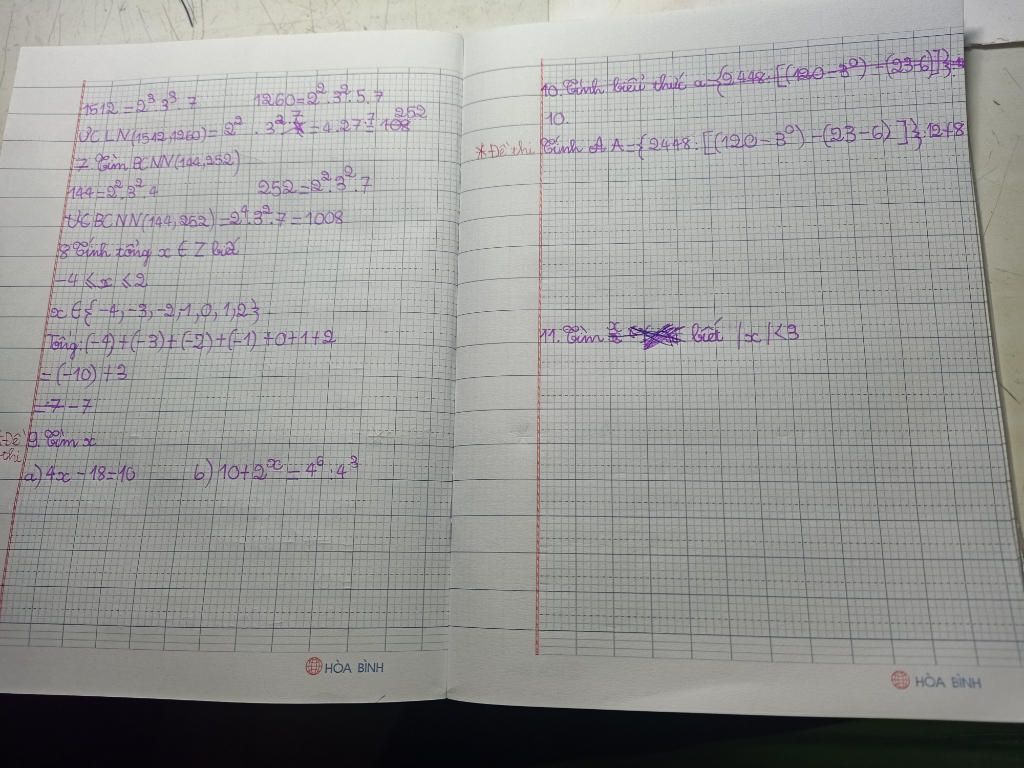 1512=2³3³7 1260=2².3².5.7
ƯCLN(1512,1260)=2².3².7=4.27= 252
7. Tìm BCNN(144,252)
144=2².3².4 252=2².3².7
BCNN(144,252)=2⁴.3².7=1008
8 Tính tổng x ∈ Z biết
-4 ≤ x ≤ 2
x ∈ {-4,-3,-2,-1,0,1,2}
Tổng: (-4)+(-3)+(-2)+(-1)+0+1+2
=(-10)+3
=-7
Đề thi 9. Tìm x
a) 4x-18=16 b) 10+2ˣ=4⁶:4³
HÒA BÌNH
10. Tính biểu thức a={2448:[(120-3⁰)-(23-6)]}
10.
*Đề thi Tính A A={2448:[(120-3⁰)-(23-6)]}.12+8
11. Tìm x biết |x|<3
HÒA BÌNH